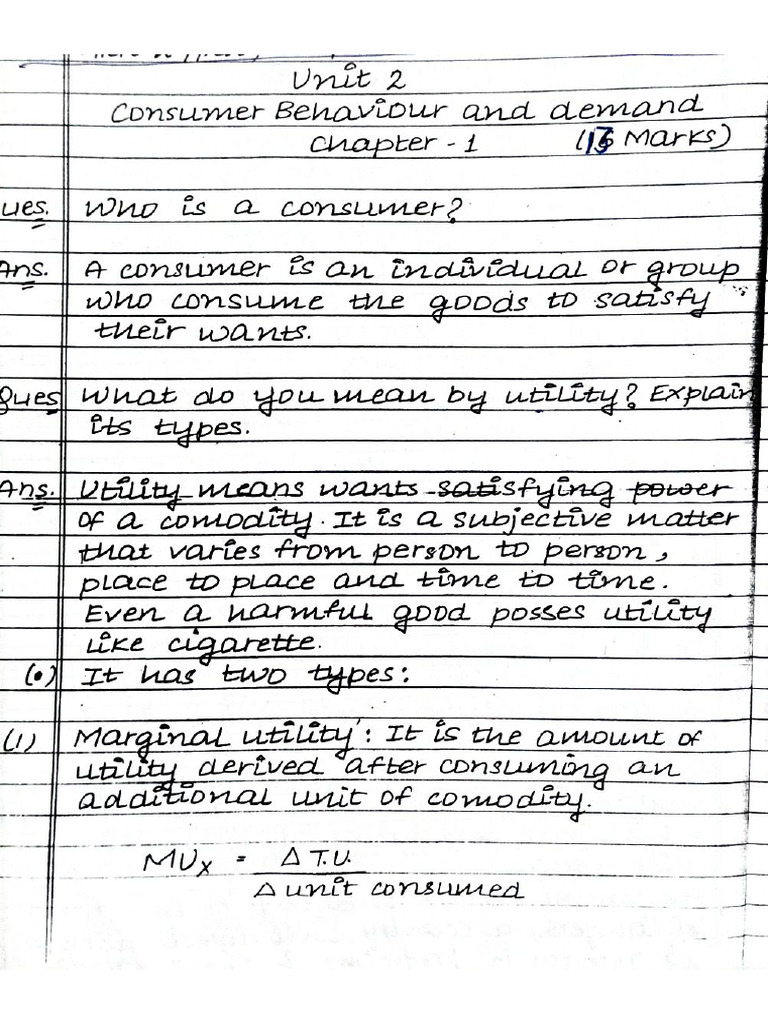 Unit 2
Consumer Behaviour and demand
Chapter - 1 (13 Marks)
ues. Who is a consumer?
Ans. A consumer is an individual or group
who consume the goods to satisfy
their wants.
Ques What do you mean by utility? Explain
its types.
Ans. Utility means wants satisfying power
of a comodity. It is a subjective matter
that varies from person to person,
place to place and time to time.
Even a harmful good posses utility
like cigarette.
(•) It has two types:
(1) Marginal utility: It is the amount of
utility derived after consuming an
additional unit of comodity.
MUx = Δ T.U.
Δ unit consumed